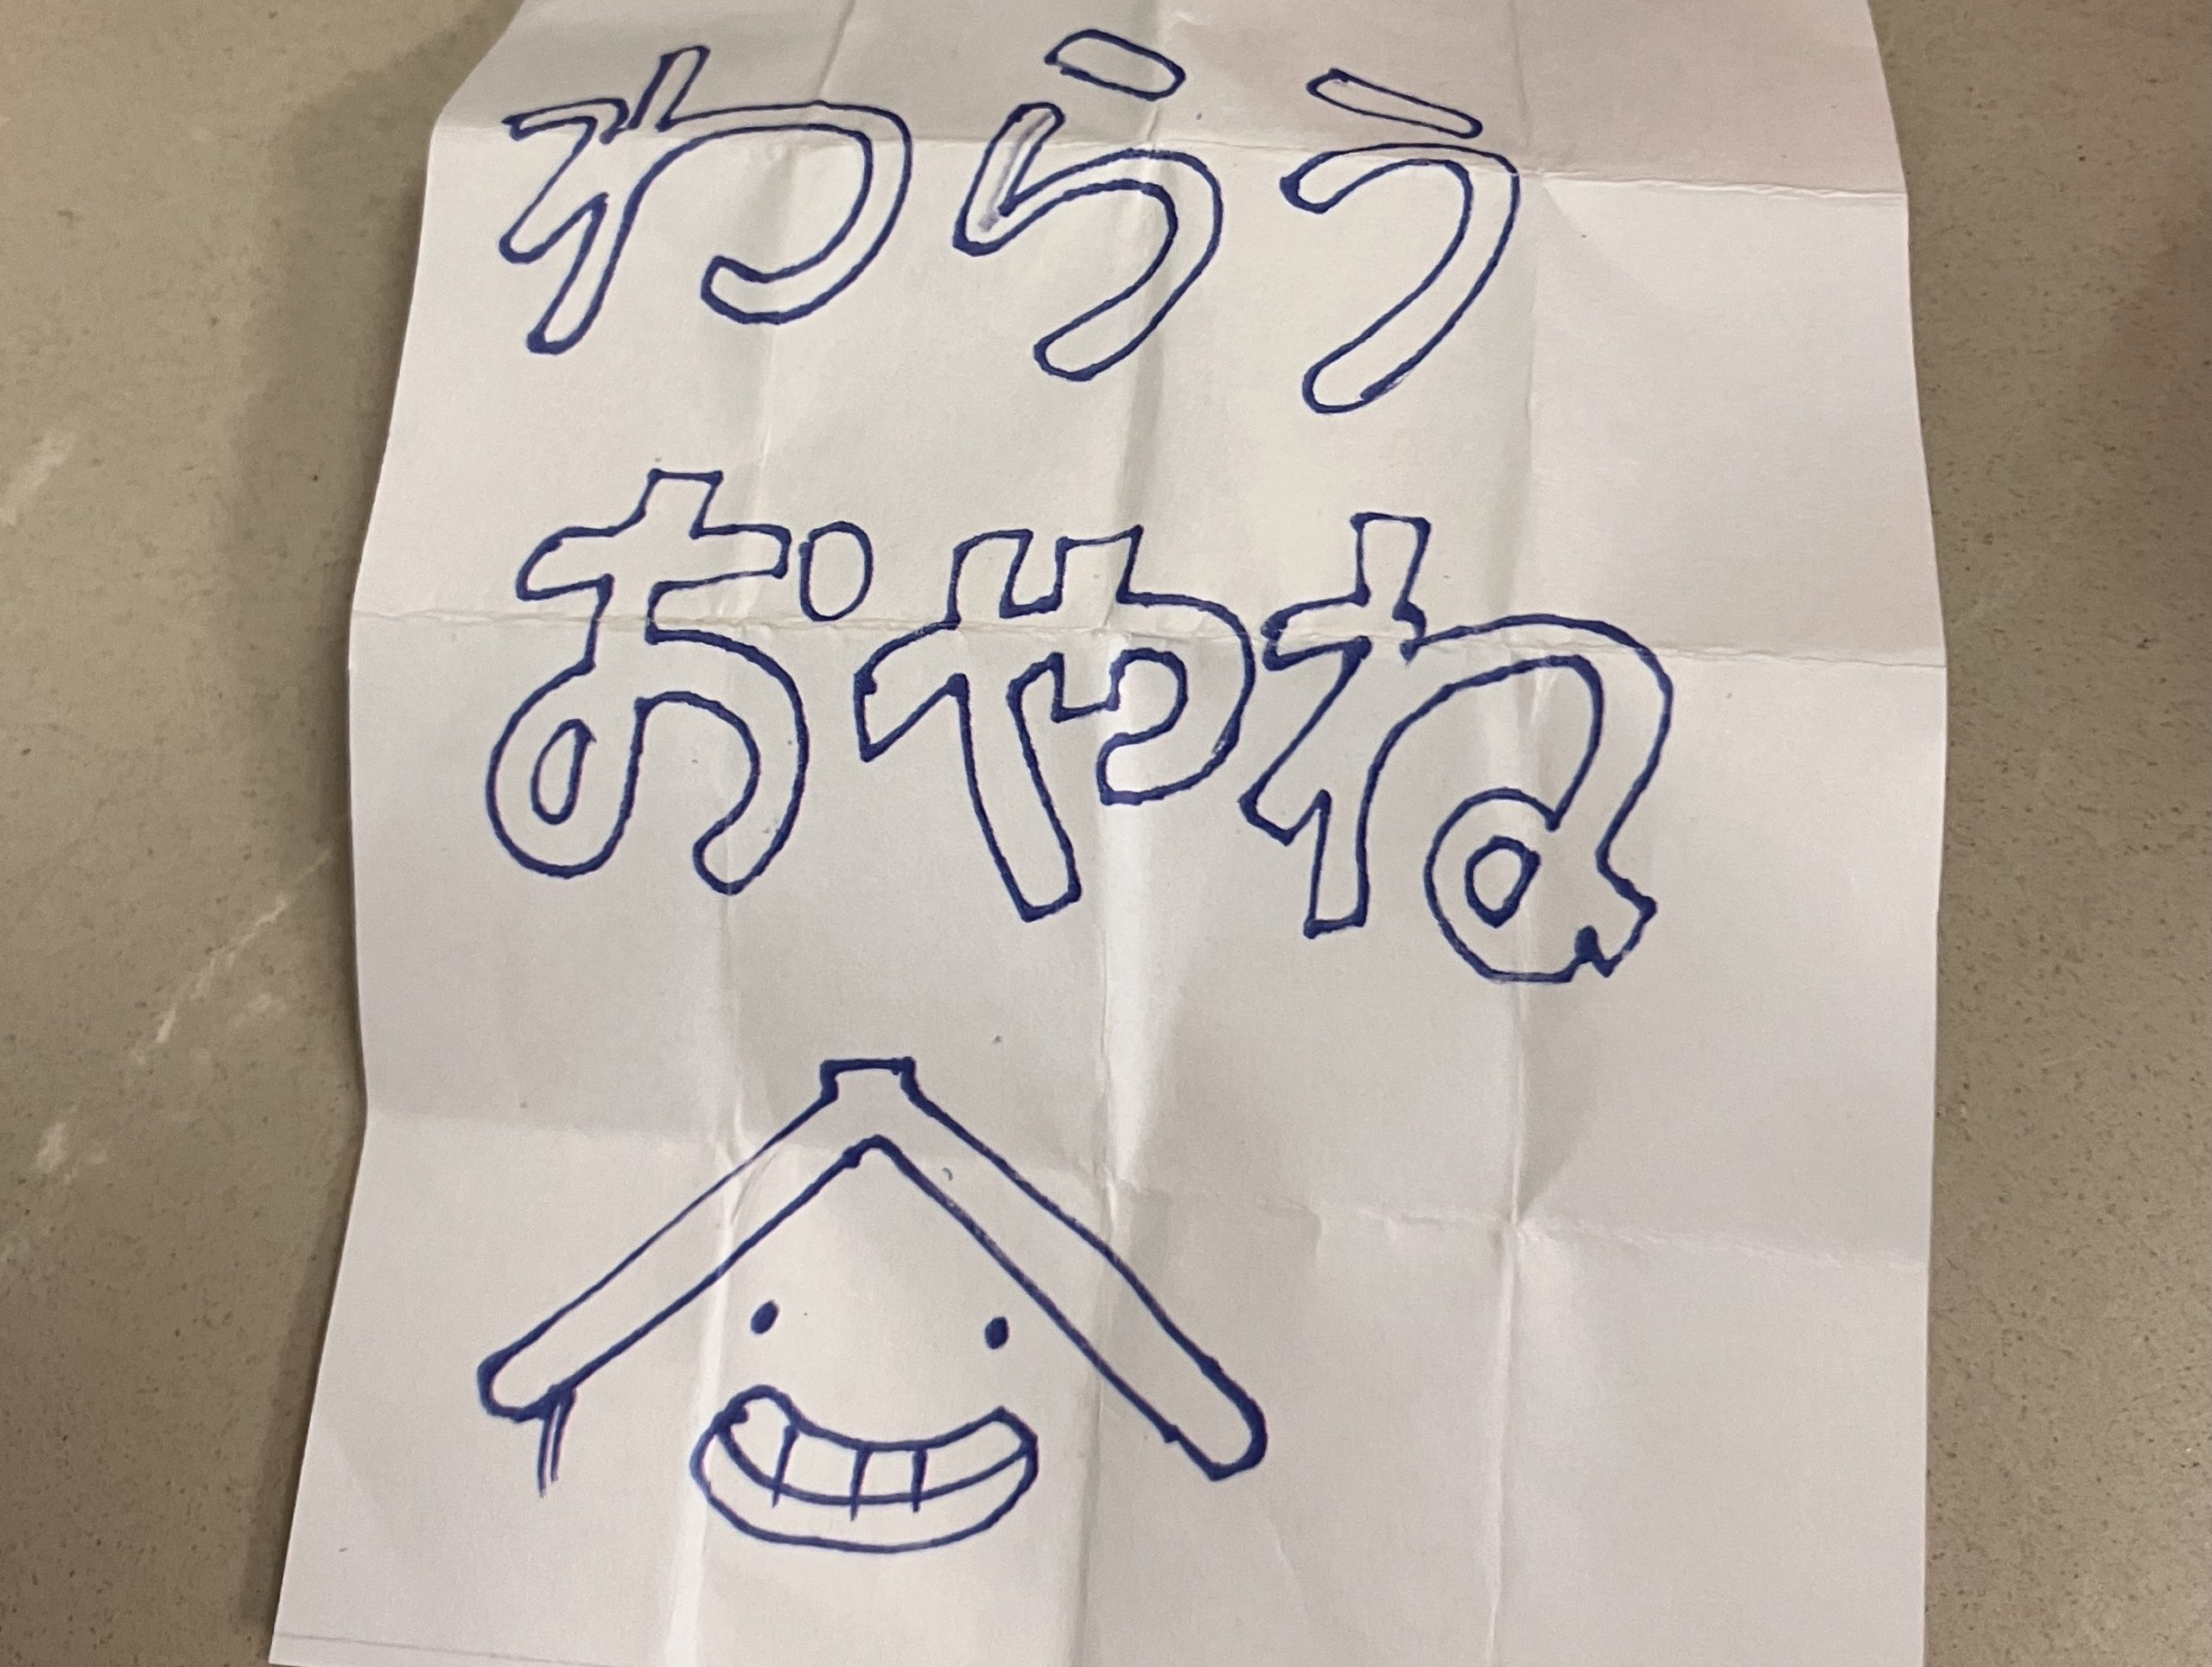 わらう
おやね